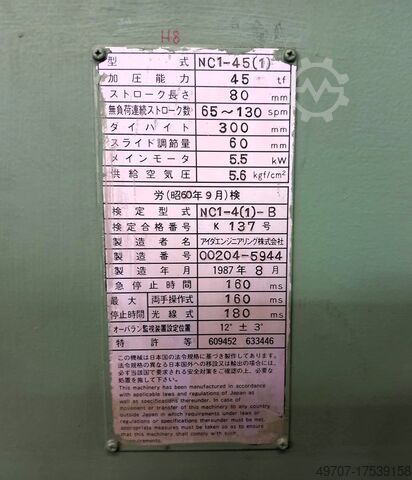 H8
型 式 NC1-45(1)
加圧能力 45 tf
ストローク長さ 80 mm
無負荷連続ストローク数 65～130 spm
ダイハイト 300 mm
スライド調節量 60 mm
メインモータ 5.5 kW
供給空気圧 5.6 kgf/cm²
労(昭60年9月)検
検定型式 NC1-4(1)-B
検定合格番号 K 137 号
製造者名 アイダエンジニアリング株式会社
製造番号 00204-5944
製造年月 1987年 8月
急停止時間 160 ms
最大停止時間 両手操作式 160 ms
光線式 180 ms
オーバラン監視装置設定位置 12° ± 3°
特許等 609452 633446
この機械は日本国の法令規格に基づき製作しております。
法令規格の異なる日本国外への移設又は輸出の場合には、
必ず当該国で要求される安全対策をご確認の上、必要な
処置を施して下さい。
This machinery has been manufactured in accordance
with applicable laws and regulations of Japan as
well as specifications thereunder. In case of
movement or transfer of this machinery to any country
outside Japan in which requirements under laws or
regulations or specifications thereunder must be met,
appropriate measures must be taken to ensure
that this machinery shall comply with such
requirements.
49707-17539158